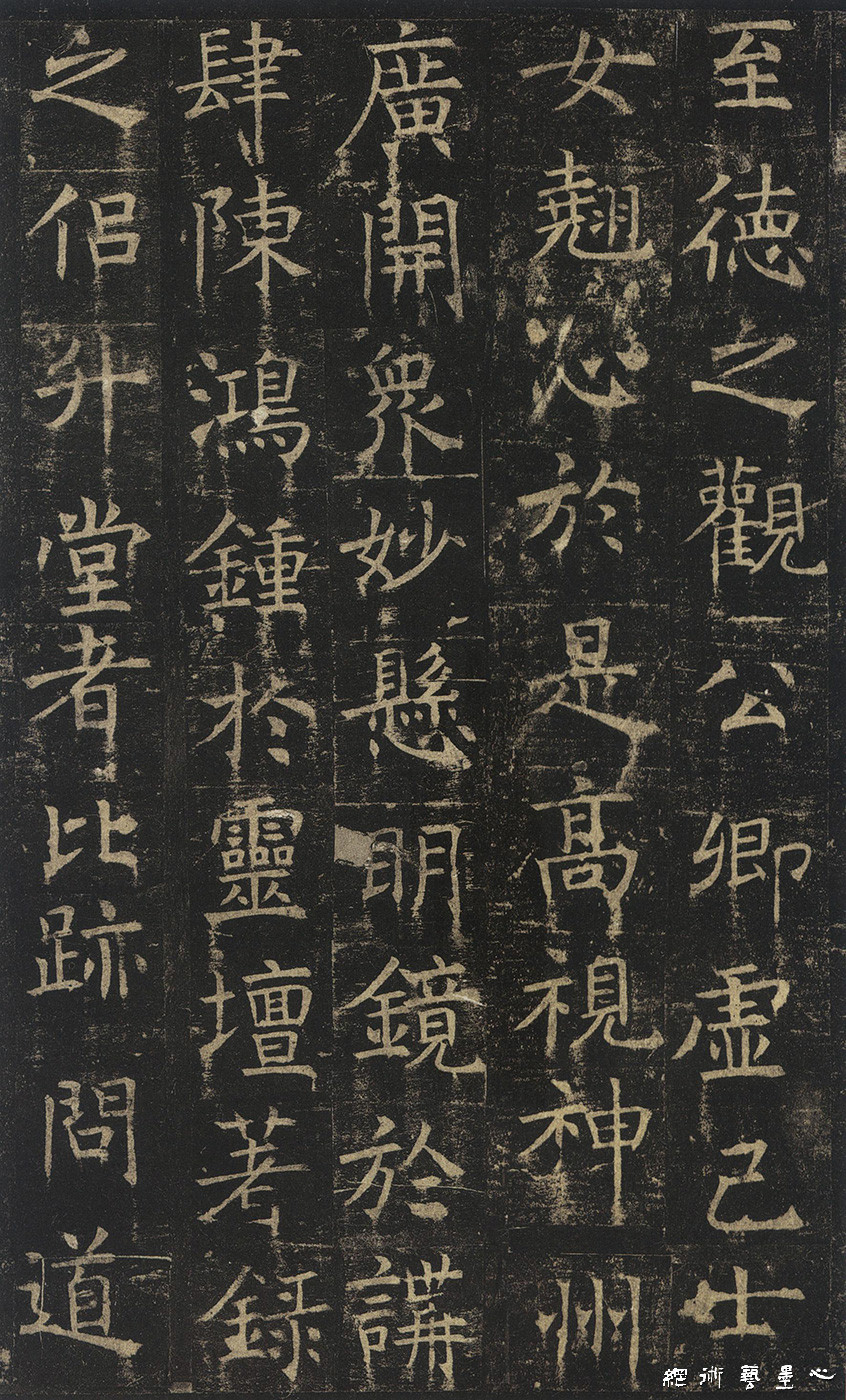 至德之觀公卿虛己士
女翹心於是高視神州
廣開衆妙懸明鏡於講
肆陳鴻鍾於靈壇著錄
之侶升堂者比跡問道
心墨藝術網